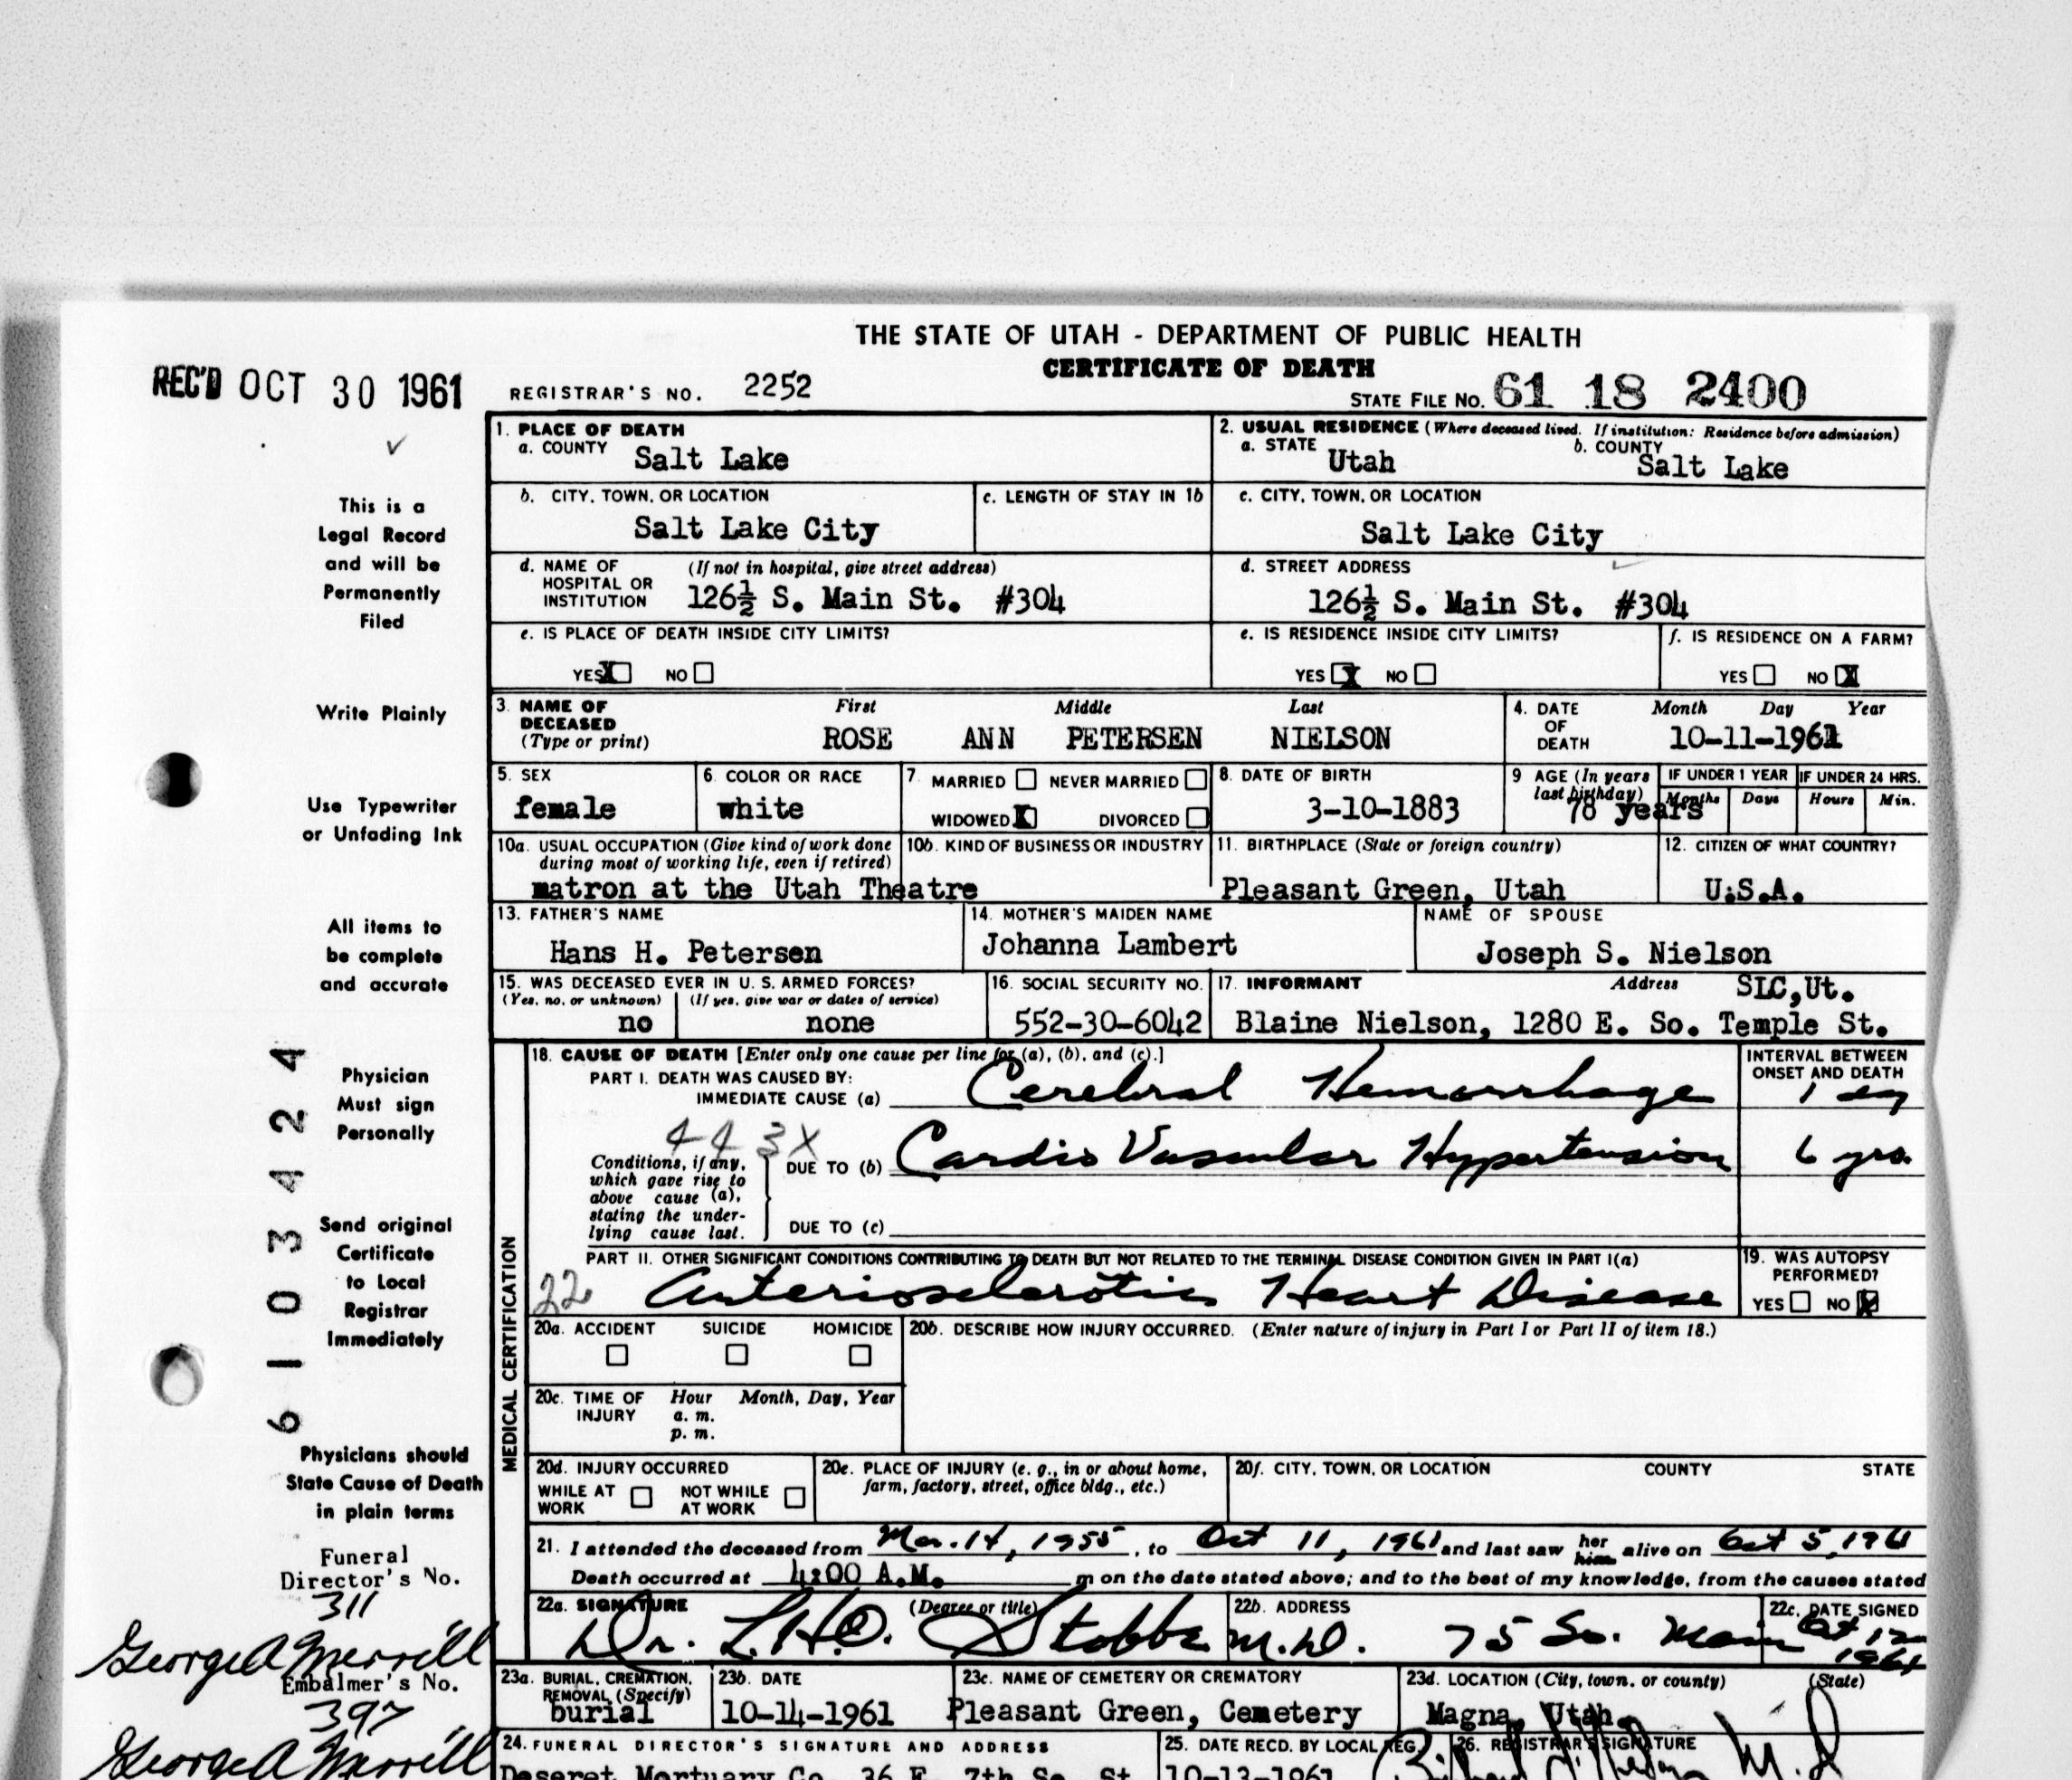 THE STATE OF UTAH - DEPARTMENT OF PUBLIC HEALTH
CERTIFICATE OF DEATH
REC'D OCT 30 1961
REGISTRAR'S NO. 2252
STATE FILE NO. 61 18 2400
1. PLACE OF DEATH
a. COUNTY Salt Lake
2. USUAL RESIDENCE (Where deceased lived. If institution: Residence before admission)
a. STATE Utah b. COUNTY Salt Lake
b. CITY, TOWN, OR LOCATION
Salt Lake City
c. LENGTH OF STAY IN 1b
c. CITY, TOWN, OR LOCATION
Salt Lake City
d. NAME OF HOSPITAL OR INSTITUTION (If not in hospital, give street address)
126½ S. Main St. #304
d. STREET ADDRESS
126½ S. Main St. #304
e. IS PLACE OF DEATH INSIDE CITY LIMITS?
YES X NO
e. IS RESIDENCE INSIDE CITY LIMITS?
YES X NO
f. IS RESIDENCE ON A FARM?
YES NO X
3. NAME OF DECEASED (Type or print)
First Middle Last
ROSE ANN PETERSEN NIELSON
4. DATE OF DEATH
Month Day Year
10-11-1961
5. SEX
female
6. COLOR OR RACE
white
7. MARRIED NEVER MARRIED
WIDOWED X DIVORCED
8. DATE OF BIRTH
3-10-1883
9 AGE (In years last birthday)
78 years
IF UNDER 1 YEAR
Months Days
IF UNDER 24 HRS.
Hours Min.
10a. USUAL OCCUPATION (Give kind of work done during most of working life, even if retired)
matron at the Utah Theatre
10b. KIND OF BUSINESS OR INDUSTRY
11. BIRTHPLACE (State or foreign country)
Pleasant Green, Utah
12. CITIZEN OF WHAT COUNTRY?
U.S.A.
13. FATHER'S NAME
Hans H. Petersen
14. MOTHER'S MAIDEN NAME
Johanna Lambert
NAME OF SPOUSE
Joseph S. Nielson
15. WAS DECEASED EVER IN U. S. ARMED FORCES?
(Yes, no, or unknown) (If yes, give war or dates of service)
no none
16. SOCIAL SECURITY NO.
552-30-6042
17. INFORMANT Address SLC,Ut.
Blaine Nielson, 1280 E. So. Temple St.
MEDICAL CERTIFICATION
18. CAUSE OF DEATH [Enter only one cause per line for (a), (b), and (c).]
INTERVAL BETWEEN ONSET AND DEATH
PART I. DEATH WAS CAUSED BY:
IMMEDIATE CAUSE (a) Cerebral Hemorrhage 1 day
443X
Conditions, if any, which gave rise to above cause (a), stating the underlying cause last.
DUE TO (b) Cardio Vascular Hypertension 6 yrs.
DUE TO (c)
PART II. OTHER SIGNIFICANT CONDITIONS CONTRIBUTING TO DEATH BUT NOT RELATED TO THE TERMINAL DISEASE CONDITION GIVEN IN PART I(a)
22 Arteriosclerotic Heart Disease
19. WAS AUTOPSY PERFORMED?
YES NO X
20a. ACCIDENT SUICIDE HOMICIDE
20b. DESCRIBE HOW INJURY OCCURRED. (Enter nature of injury in Part I or Part II of item 18.)
20c. TIME OF INJURY Hour Month, Day, Year
a. m.
p. m.
20d. INJURY OCCURRED
WHILE AT WORK NOT WHILE AT WORK
20e. PLACE OF INJURY (e. g., in or about home, farm, factory, street, office bldg., etc.)
20f. CITY, TOWN, OR LOCATION COUNTY STATE
21. I attended the deceased from Mar. 14, 1955, to Oct 11, 1961 and last saw her him alive on Oct 5, 1961
Death occurred at 4:00 A.M. m on the date stated above; and to the best of my knowledge, from the causes stated
22a. SIGNATURE (Degree or title)
Dr. L.H.O. Stobbe M.D.
22b. ADDRESS
75 So. Main
22c. DATE SIGNED
Oct 12 1961
23a. BURIAL, CREMATION, REMOVAL (Specify)
burial
23b. DATE
10-14-1961
23c. NAME OF CEMETERY OR CREMATORY
Pleasant Green, Cemetery
23d. LOCATION (City, town, or county) (State)
Magna, Utah
24. FUNERAL DIRECTOR'S SIGNATURE AND ADDRESS
Deseret Mortuary Co. 36 E. 7th So. St.
25. DATE RECD. BY LOCAL REG.
10-13-1961
26. REGISTRAR'S SIGNATURE
M.D
This is a
Legal Record
and will be
Permanently
Filed
Write Plainly
Use Typewriter
or Unfading Ink
All items to
be complete
and accurate
Physician
Must sign
Personally
Send original
Certificate
to Local
Registrar
Immediately
Physicians should
State Cause of Death
in plain terms
Funeral
Director's No.
311
George A Merrill
Embalmer's No.
397
George A Merrill
6 1 0 3 4 2 4